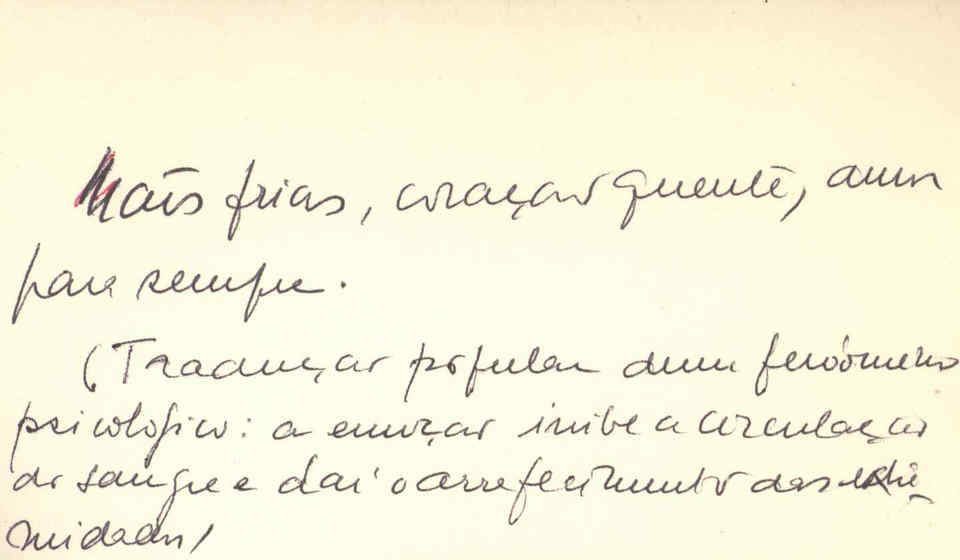 Mãos frias, coração quente, amor
para sempre.
(Tradução popular dum fenómeno
psicológico: a emoção inibe a circulação
do sangue e daí o arrefecimento das extre-
midades)